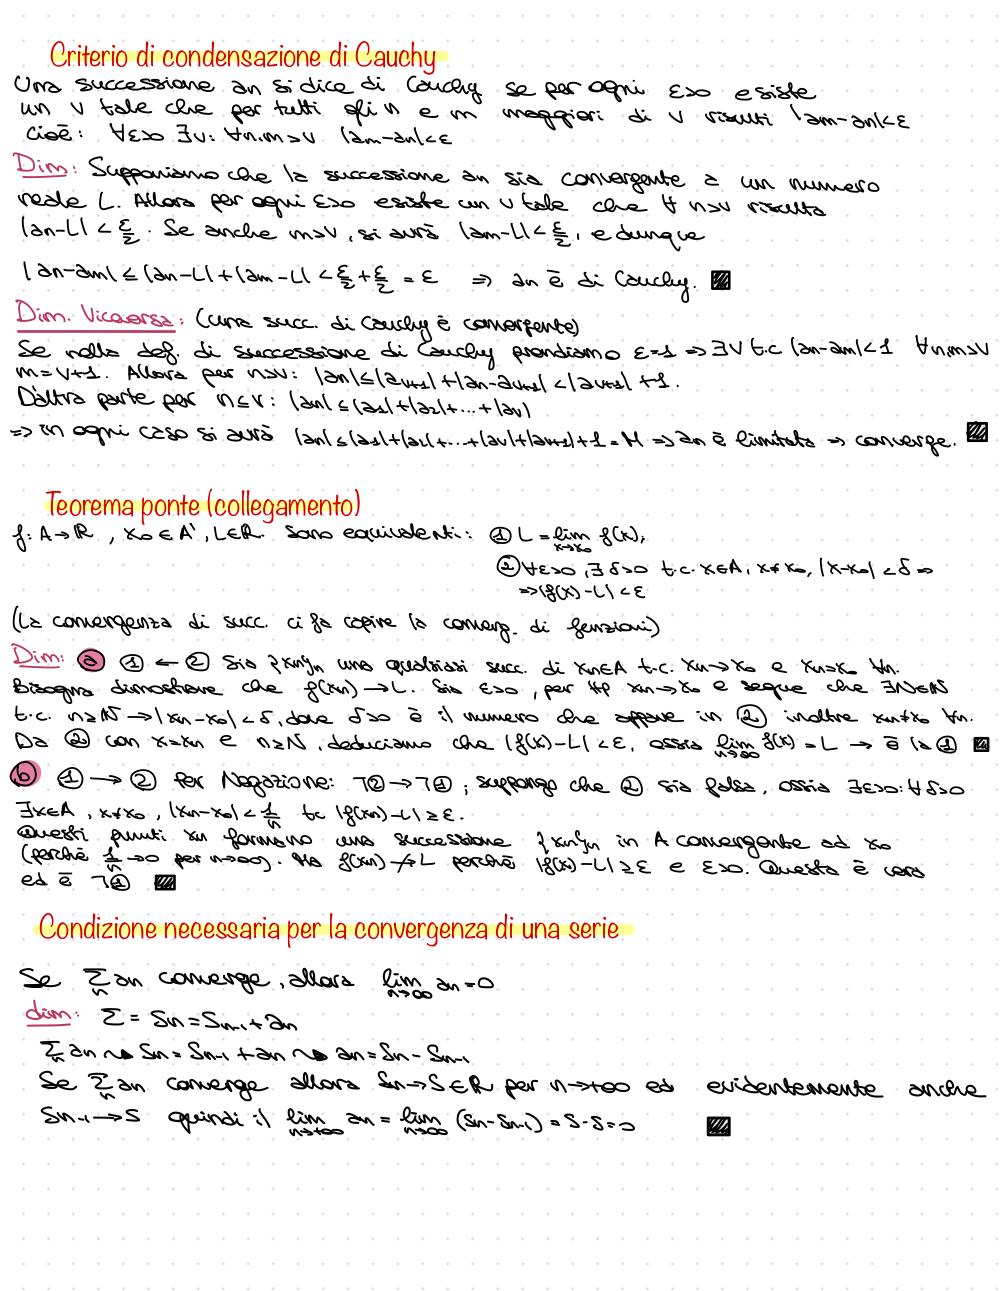 Criterio di condensazione di Cauchy
Una successione an si dice di Cauchy se per ogni ε>0 esiste
un ν tale che per tutti gli n e m maggiori di ν risulti |am-an|<ε
cioè: ∀ε>0 ∃ν: ∀n,m>ν |am-an|<ε
Dim: Supponiamo che la successione an sia convergente a un numero
reale L. Allora per ogni ε>0 esiste un ν tale che ∀ n>ν risulta
|an-L| < ε/2. Se anche m>ν, si avrà |am-L| < ε/2, e dunque
|an-am| ≤ |an-L|+|am-L| < ε/2+ε/2 = ε ⇒ an è di Cauchy.
Dim. Viceversa: (una succ. di Cauchy è convergente)
Se nella def. di successione di Cauchy prendiamo ε=1 ⇒ ∃ν t.c |an-am|<1 ∀n,m>ν
m=ν+1. Allora per n>ν: |an|≤|aν+1|+|an-aν+1|<|aν+1|+1.
D'altra parte per n≤ν: |an|≤|a1|+|a2|+...+|aν|
⇒ in ogni caso si avrà |an|≤|a1|+|a2|+...+|aν|+|aν+1|+1=M ⇒ an è limitata ⇒ converge.
Teorema ponte (collegamento)
f: A→ℝ, x0∈A', L∈ℝ. Sono equivalenti: ① L = lim x→x0 f(x),
② ∀ε>0, ∃δ>0 t.c. x∈A, x≠x0, |x-x0|<δ ⇒
⇒|f(x)-L|<ε
(La convergenza di succ. ci fa capire la converg. di funzioni)
Dim: ⓐ ① ← ② Sia {xn}n una qualsiasi succ. di xn∈A t.c. xn→x0 e xn≠x0 ∀n.
Bisogna dimostrare che f(xn)→L. Sia ε>0, per Hp xn→x0 e segue che ∃N∈ℕ
t.c. n≥N →|xn-x0|<δ, dove δ>0 è il numero che appare in ② inoltre xn≠x0 ∀n.
Da ② con x=xn e n≥N, deduciamo che |f(x)-L|<ε, ossia lim n→∞ f(x) = L → è la ①
ⓑ ① → ② Per Negazione: ¬②→¬①, suppongo che ② sia falsa, ossia ∃ε>0: ∀δ>0
∃x∈A, x≠x0, |xn-x0|<1/n tc |f(xn)-L|≥ε.
Questi punti xn formano una successione {xn}n in A convergente ad x0
(perché 1/n→0 per n→∞). Ma f(xn)↛L perché |f(x)-L|≥ε e ε>0. Questa è vera
ed è ¬①
Condizione necessaria per la convergenza di una serie
Se Σn an converge, allora lim n→∞ an=0
dim: Σ = Sn = Sn-1 + an
Σn an ⇝ Sn = Sn-1 + an ⇝ an = Sn - Sn-1
Se Σn an converge allora Sn→S∈ℝ per n→+∞ ed evidentemente anche
Sn-1→S quindi il lim n→+∞ an = lim n→∞ (Sn-Sn-1) = S-S=0